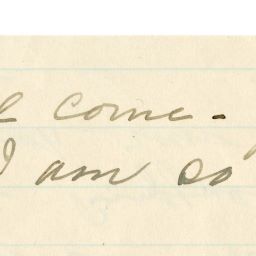 come -
I am so